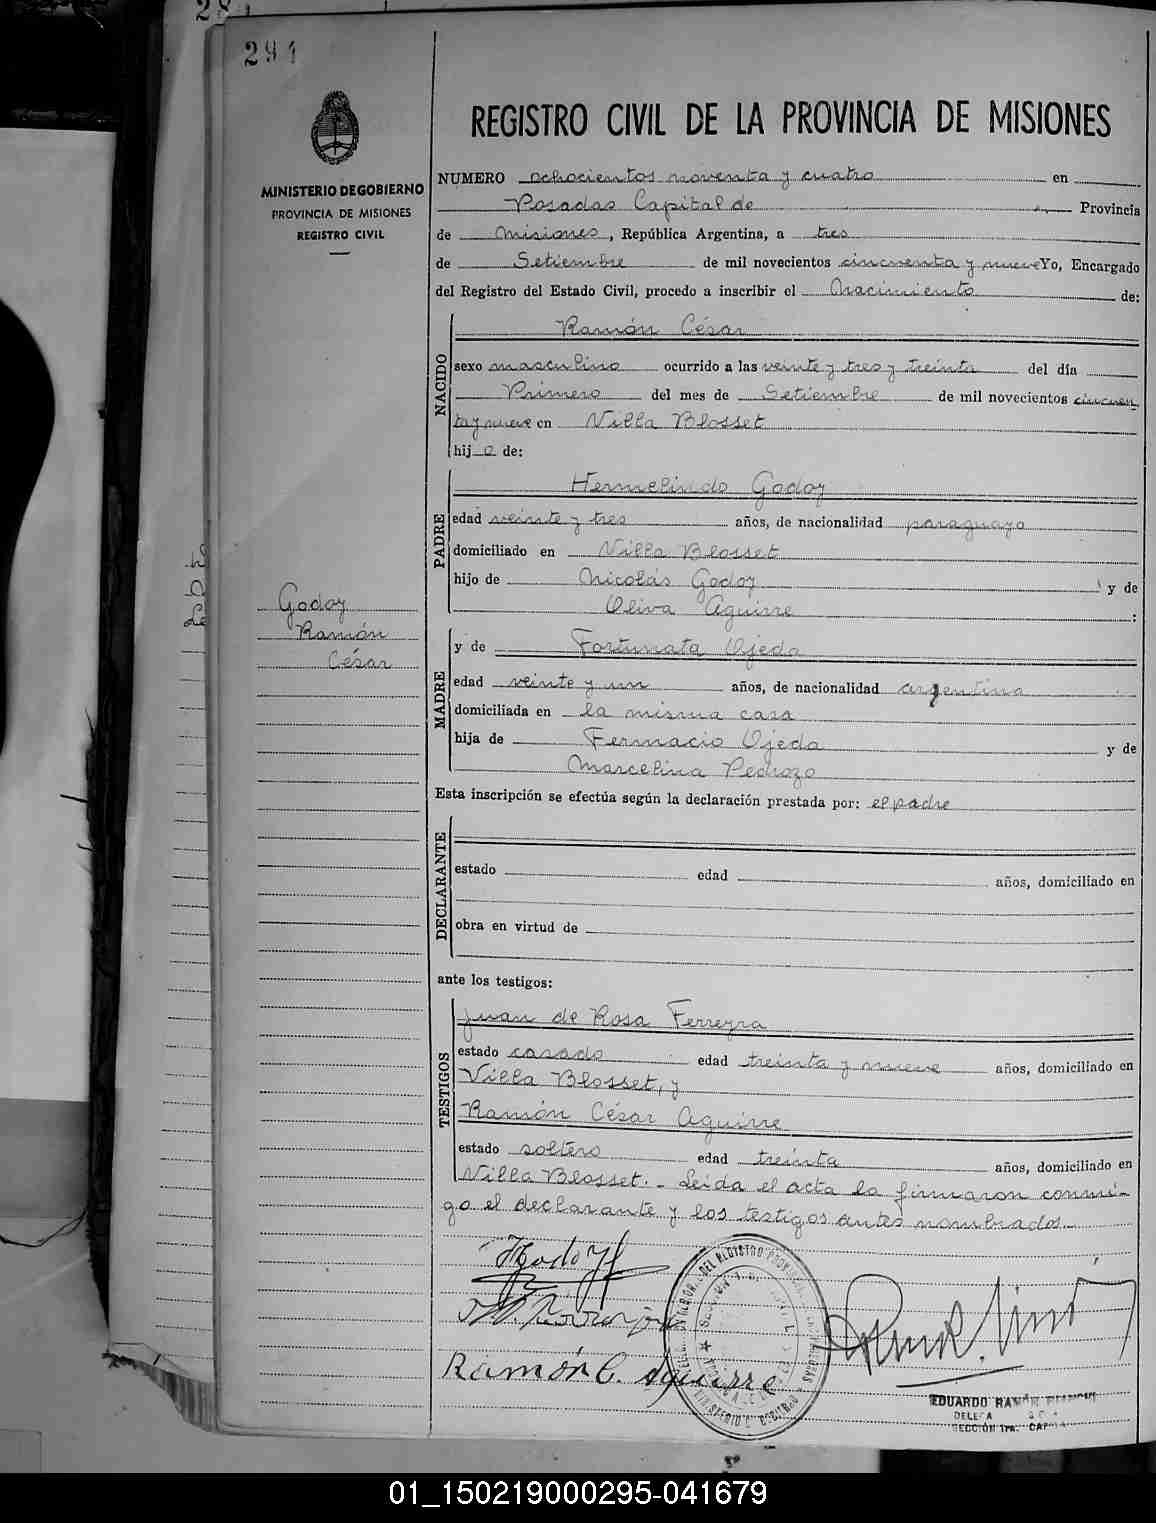 294
MINISTERIO DE GOBIERNO
PROVINCIA DE MISIONES
REGISTRO CIVIL
REGISTRO CIVIL DE LA PROVINCIA DE MISIONES
NUMERO ochocientos noventa y cuatro en
Posadas Capital de Provincia
de Misiones, República Argentina, a tres
de Setiembre de mil novecientos cincuenta y nueve Yo, Encargado
del Registro del Estado Civil, procedo a inscribir el Nacimiento de:
NACIDO
Ramón César
sexo masculino ocurrido a las veinte y tres y treinta del día
Primero del mes de Setiembre de mil novecientos cincuen
ta y nueve en Villa Blosset
hijo de:
PADRE
Hermelindo Godoy
edad veinte y tres años, de nacionalidad paraguayo
domiciliado en Villa Blosset
hijo de Nicolás Godoy y de
Oliva Aguirre :
Godoy
Ramón
César
MADRE
y de Fortunata Ojeda
edad veinte y un años, de nacionalidad argentina
domiciliada en la misma casa
hija de Fermacio Ojeda y de
Marcelina Pedrozo
Esta inscripción se efectúa según la declaración prestada por: el padre
DECLARANTE
estado edad años, domiciliado en
obra en virtud de
ante los testigos:
TESTIGOS
Juan de Rosa Ferreyra
estado casado edad treinta y nueve años, domiciliado en
Villa Blosset, y
Ramón César Aguirre
estado soltero edad treinta años, domiciliado en
Villa Blosset. - Leida el acta la firmaron conmi-
go el declarante y los testigos antes nombrados.
Ramón C. Aguirre
EDUARDO RAMÓN BIANCHI
SECCIÓN 1ra. CAPITAL
01_150219000295-041679